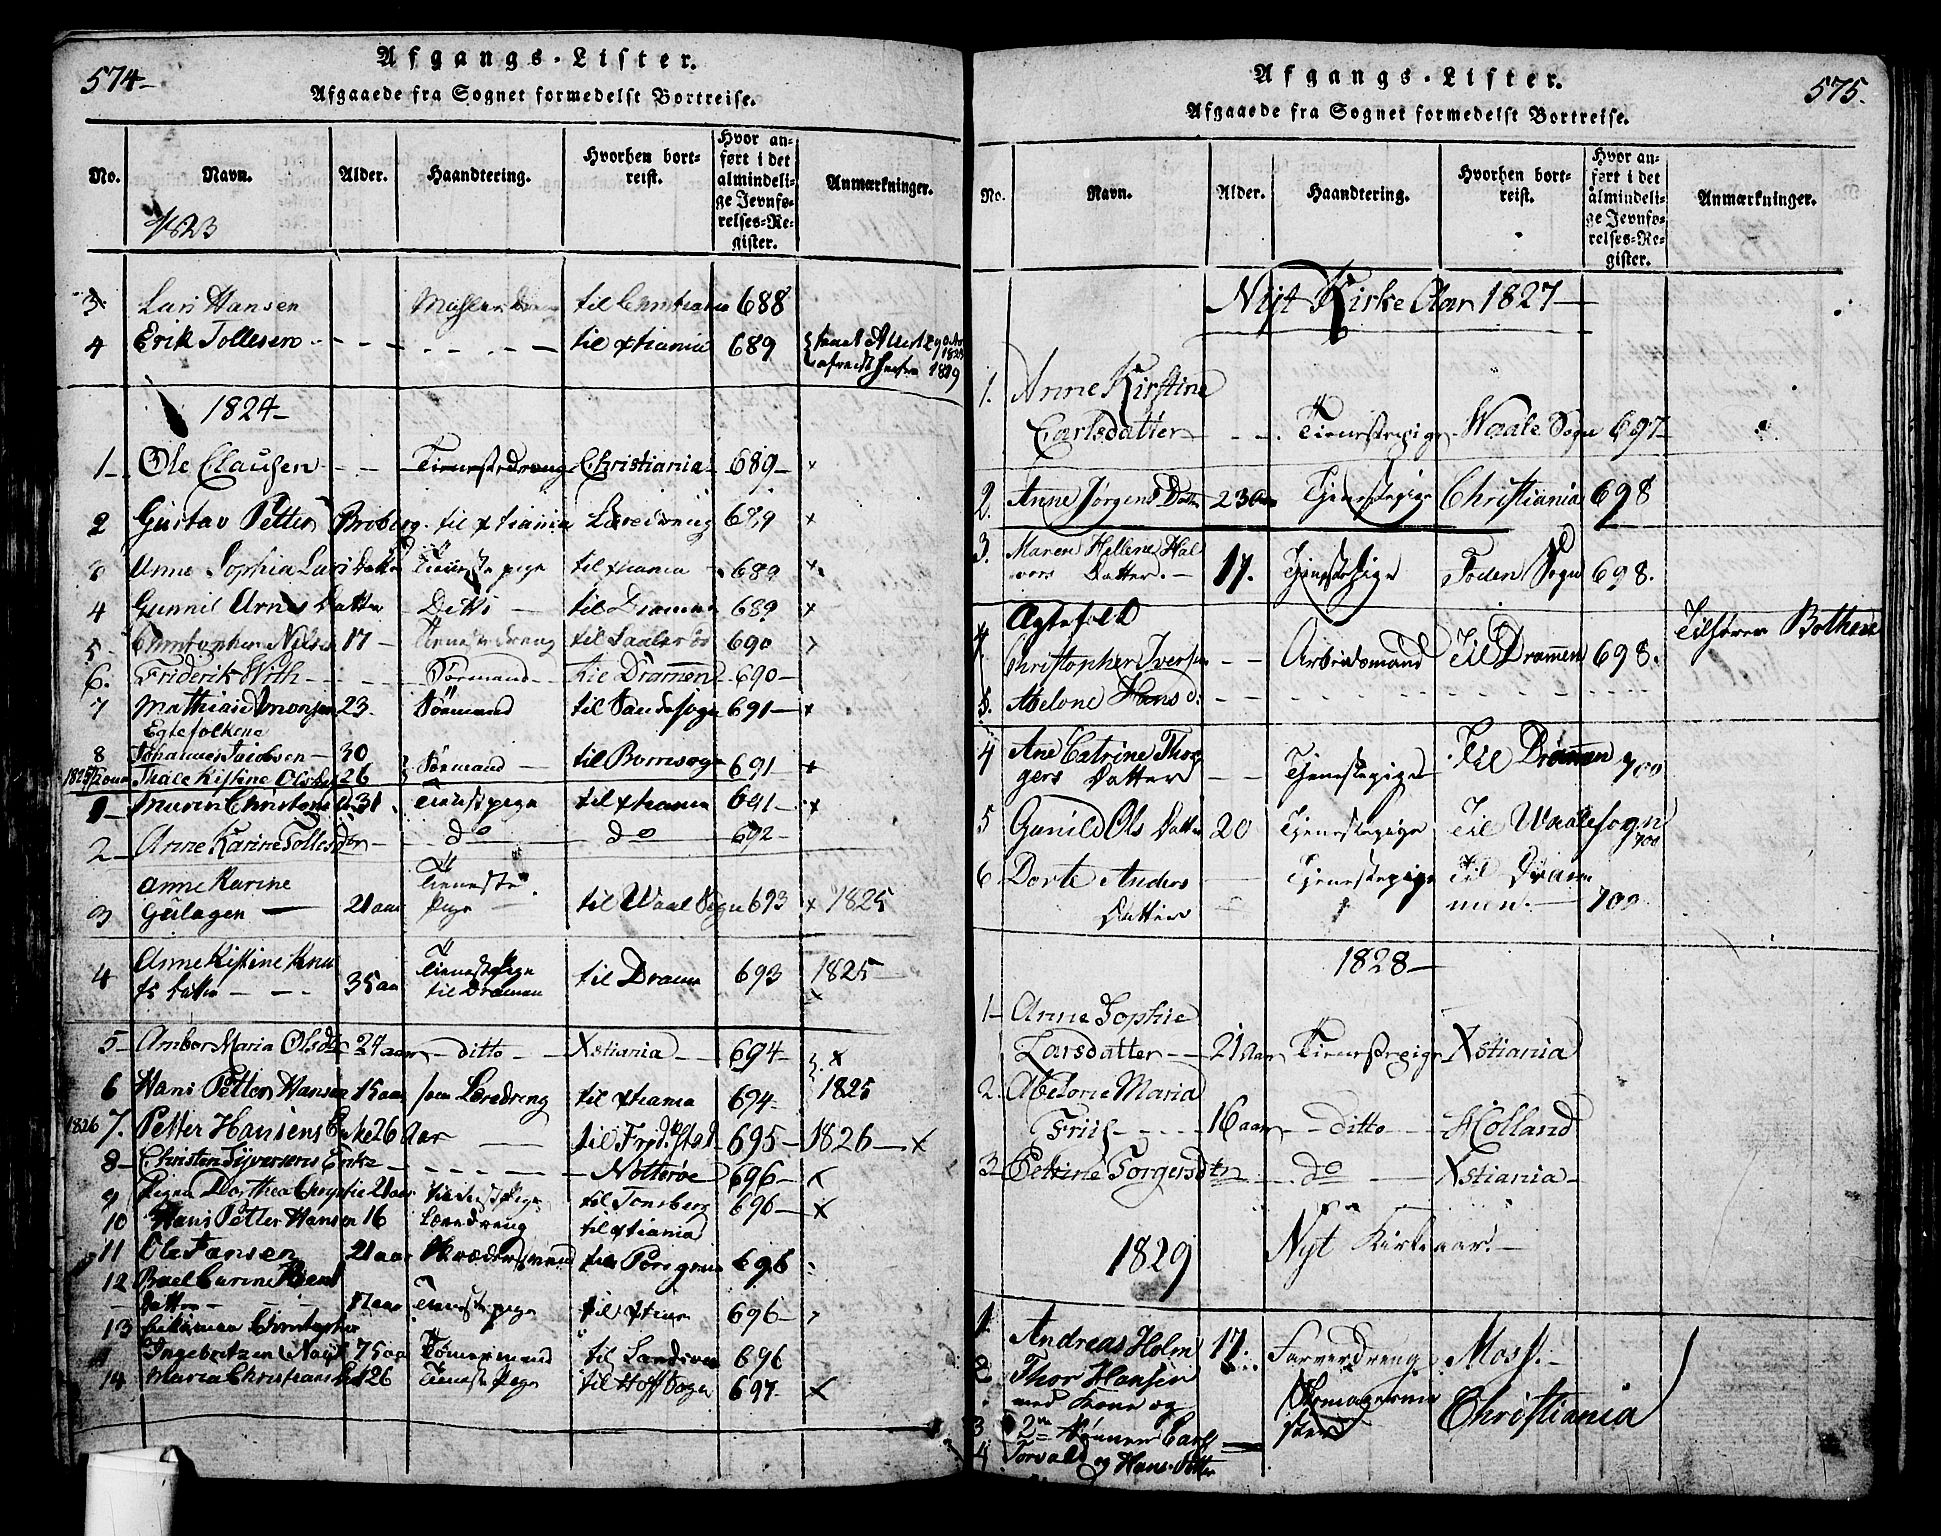 574-
Afgangs-Lister.
Afgaaede fra Sognet formedelst Bortreise.
No. Navn. Alder. Haandtering. Hvorhen bortreist. Hvor anført i det almindelige Jevnførelses-Register. Anmærkninger.
1823
3 Lars Hansen til Christiania 688
4 Erik Tollesen - - - - - - til Xtiania 689
1824-
1- Ole Clausen - - - Tienestedreng Christiania- 689- x
2 Gustav Petter Broberg. til Xtiania Læredreng 689 x
3 Anne Sophia Lars Datter Tienestepige til Xtiania - 689 x
4 Gunnil Arnes Datter Ditto - til Drammen 689 x
5- Christopher Nilsen 17 - Tienestedreng til 690
6. Friderik Wirth - - - - Sørmand - til Drammen 690-
7 Mathias Simonsen 23. Sørmand til Sandesogn 691- x
Egtefolkene
8 Johannes Jacobsen - 30 Sørmand - til Borresogn 691- x
1825 Kone Thale Kistine Olsdatter 26
1- Maren Christens 31 Tienestpige til Xtiania 691- x
2- Anne Karine Tollesdtr - do do 692-
3 Anne Karine
Gulagen - 21 aar Tieneste Pige - til Waal Sogn 693 x 1825
4 Anne Kistine Knu
ds Datter - - - 35 aar TienestePige
til Dramen til Dramen 693 1825-
5- Ambor Maria Olsdr 24 aar - ditto - Xstiania - 694- x
6 Hans Petter Hansen 15 aar som Læredreng til Xtiania 694- 1825
1826 7. Petter Hansens Enke 26 Aar - til Frid.stad 695- 1826- x
8- Christen Syversens Enke - - - - - - Nøtterøe 696- x
9 Pigen Dorthea 21 aar tienestPige til Tonsberg 696- x
10 Hans Petter Hansen 16 Læredreng til Xtiania
11 Ole Jansen 21 aar Skræder svend til Porsgrun 696
12 Karine
datter - - 17 aar Tienestepige til Xtian 696-
13
Ingebretzen 75 aar Tømermand til 696
14 Maria Christians 26 TienestePige til Hoff Sogn 697- x
575.
Afgangs-Lister.
Afgaaede fra Sognet formedelst Bortreise.
No. Navn. Alder. Haandtering. Hvorhen bortreist. Hvor anført i det almindelige Jevnførelses-Register. Anmærkninger.
Nyt Kirke Aar 1827-
1. Anne Kirstine
Carlsdatter - - - Tienestepige Waale Sogn 697-
2 Anne Jørgens Datter 23 Aar Tjenestepige Christiania 698
3. Maren Hellene Hal
vors Datter. - 17. Tjenestepige Soden Sogn 698.
Agtefolk Tilhører Bothene
4 Christopher Iversen - - Arbeidsmand Til Drammen 698.
5. Abelone Hans d. - - - - - - -
4 Ane Catrine Thor
gers Datter - - Tjenestepige Til Drammen 700
5 Gunild Ols Datter 20 Tjenestepige Til Waale sogn 700
6 Dorte Anders
Datter - Tjenestepige Til Dram
men. - 700.
1828-
1- Anne Sophie
Larsdatter - - 21 aar Tienestepige Xstiania
2. Abelone Maria
Friis - - - - 16 aar - ditto - Holland
3- Petrine Torgersdtr - - do - Xstiania-
1829 Nyt Kirkeaar! -
1. Andreas Holm 17. Farverdreng Moss. -
2 Thor Hansen Skomagerme
ster Christiania
med Kone og
3 2de Sønner Carl
4 Torvald og Hans Petter